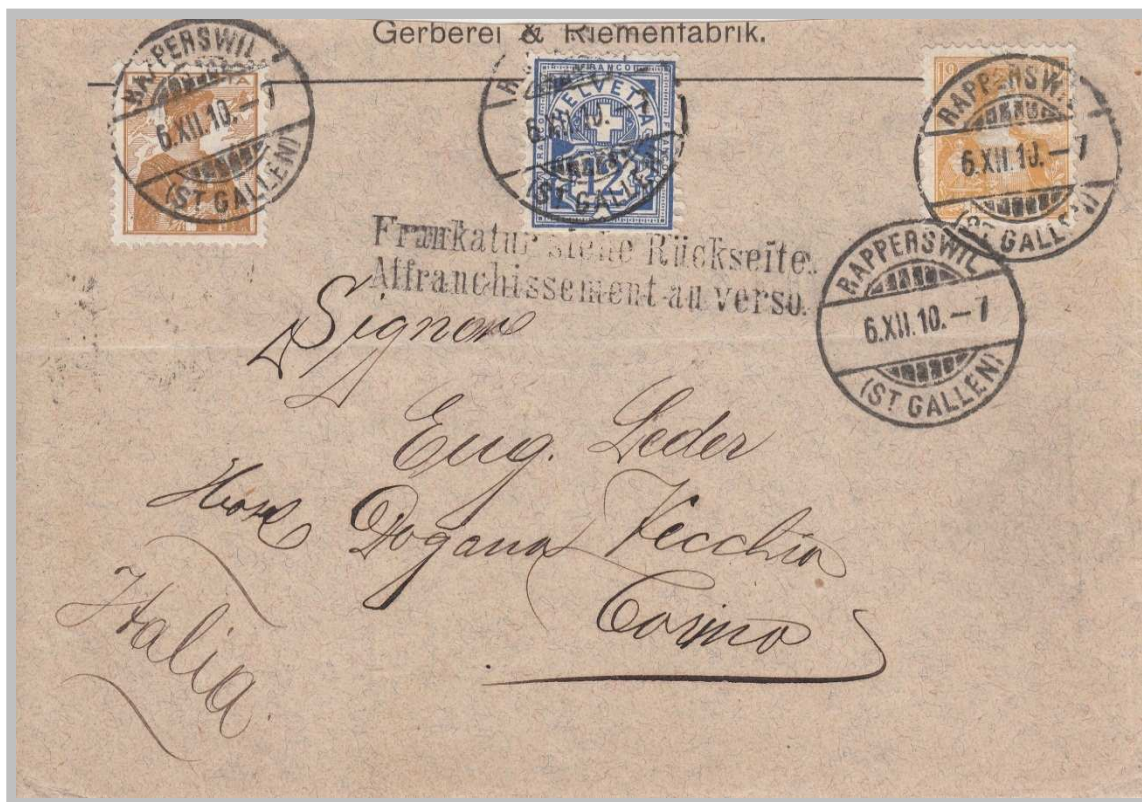 Gerberei & Riemenfabrik.
RAPPERSWIL
6.XII.10.–7
(ST GALLEN)
FRANCO
HELVETIA
12
RAPPERSWIL
6.XII.10.–7
(ST GALLEN)
10
RAPPERSWIL
6.XII.10.–7
(ST GALLEN)
Frankatur siehe Rückseite.
Affranchissement au verso.
RAPPERSWIL
6.XII.10.–7
(ST GALLEN)
Signore
Eug. Leder
Dogana Vecchia
Como
Italia